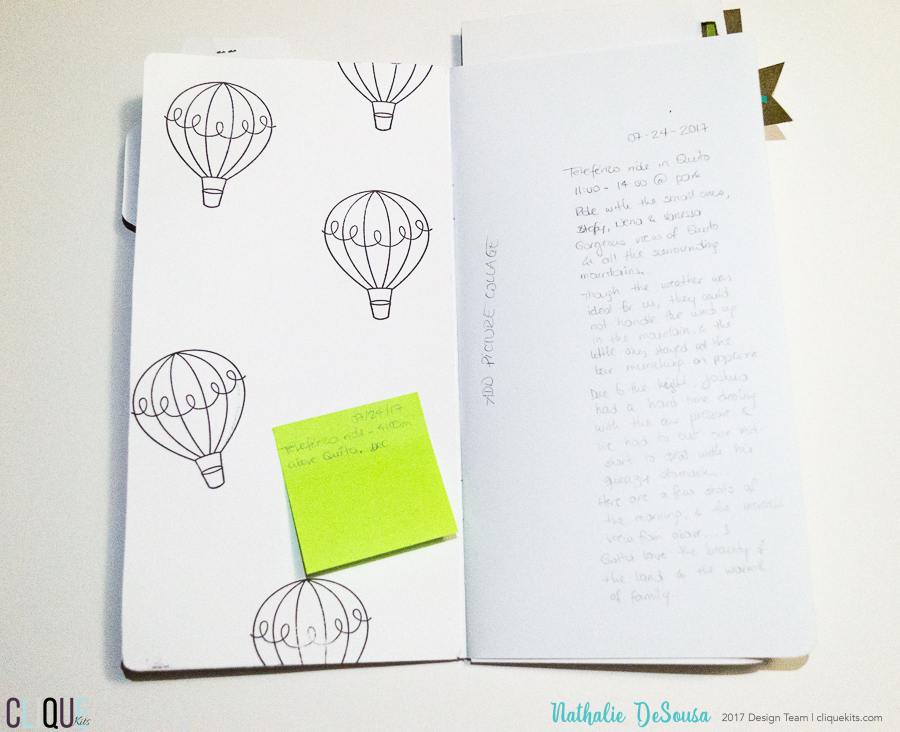 07/24/17
Teleferico ride - 4100m
above Quito.
ADD PICTURE COLLAGE
07-24-2017
Teleferico ride in Quito
11:00 - 14:00 @ park
Ride with the small ones,
Nena & Vanessa
Gorgeous view of Quito
& all the surrounding
mountains.
Though the weather was
ideal for us, they could
not handle the wind up
in the mountain, & the
little ones stayed at the
bar munching on popcorn
Due to the height, Joshua
had a hard time dealing
with the air pressure &
we had to cut our visit
short to deal with his
stomach...
Here are a few shots of
the morning, & the
view from above...
Gotta love the beauty of
the land & the warmth
of family.
CLIQUE Kits
Nathalie DeSousa 2017 Design Team | cliquekits.com